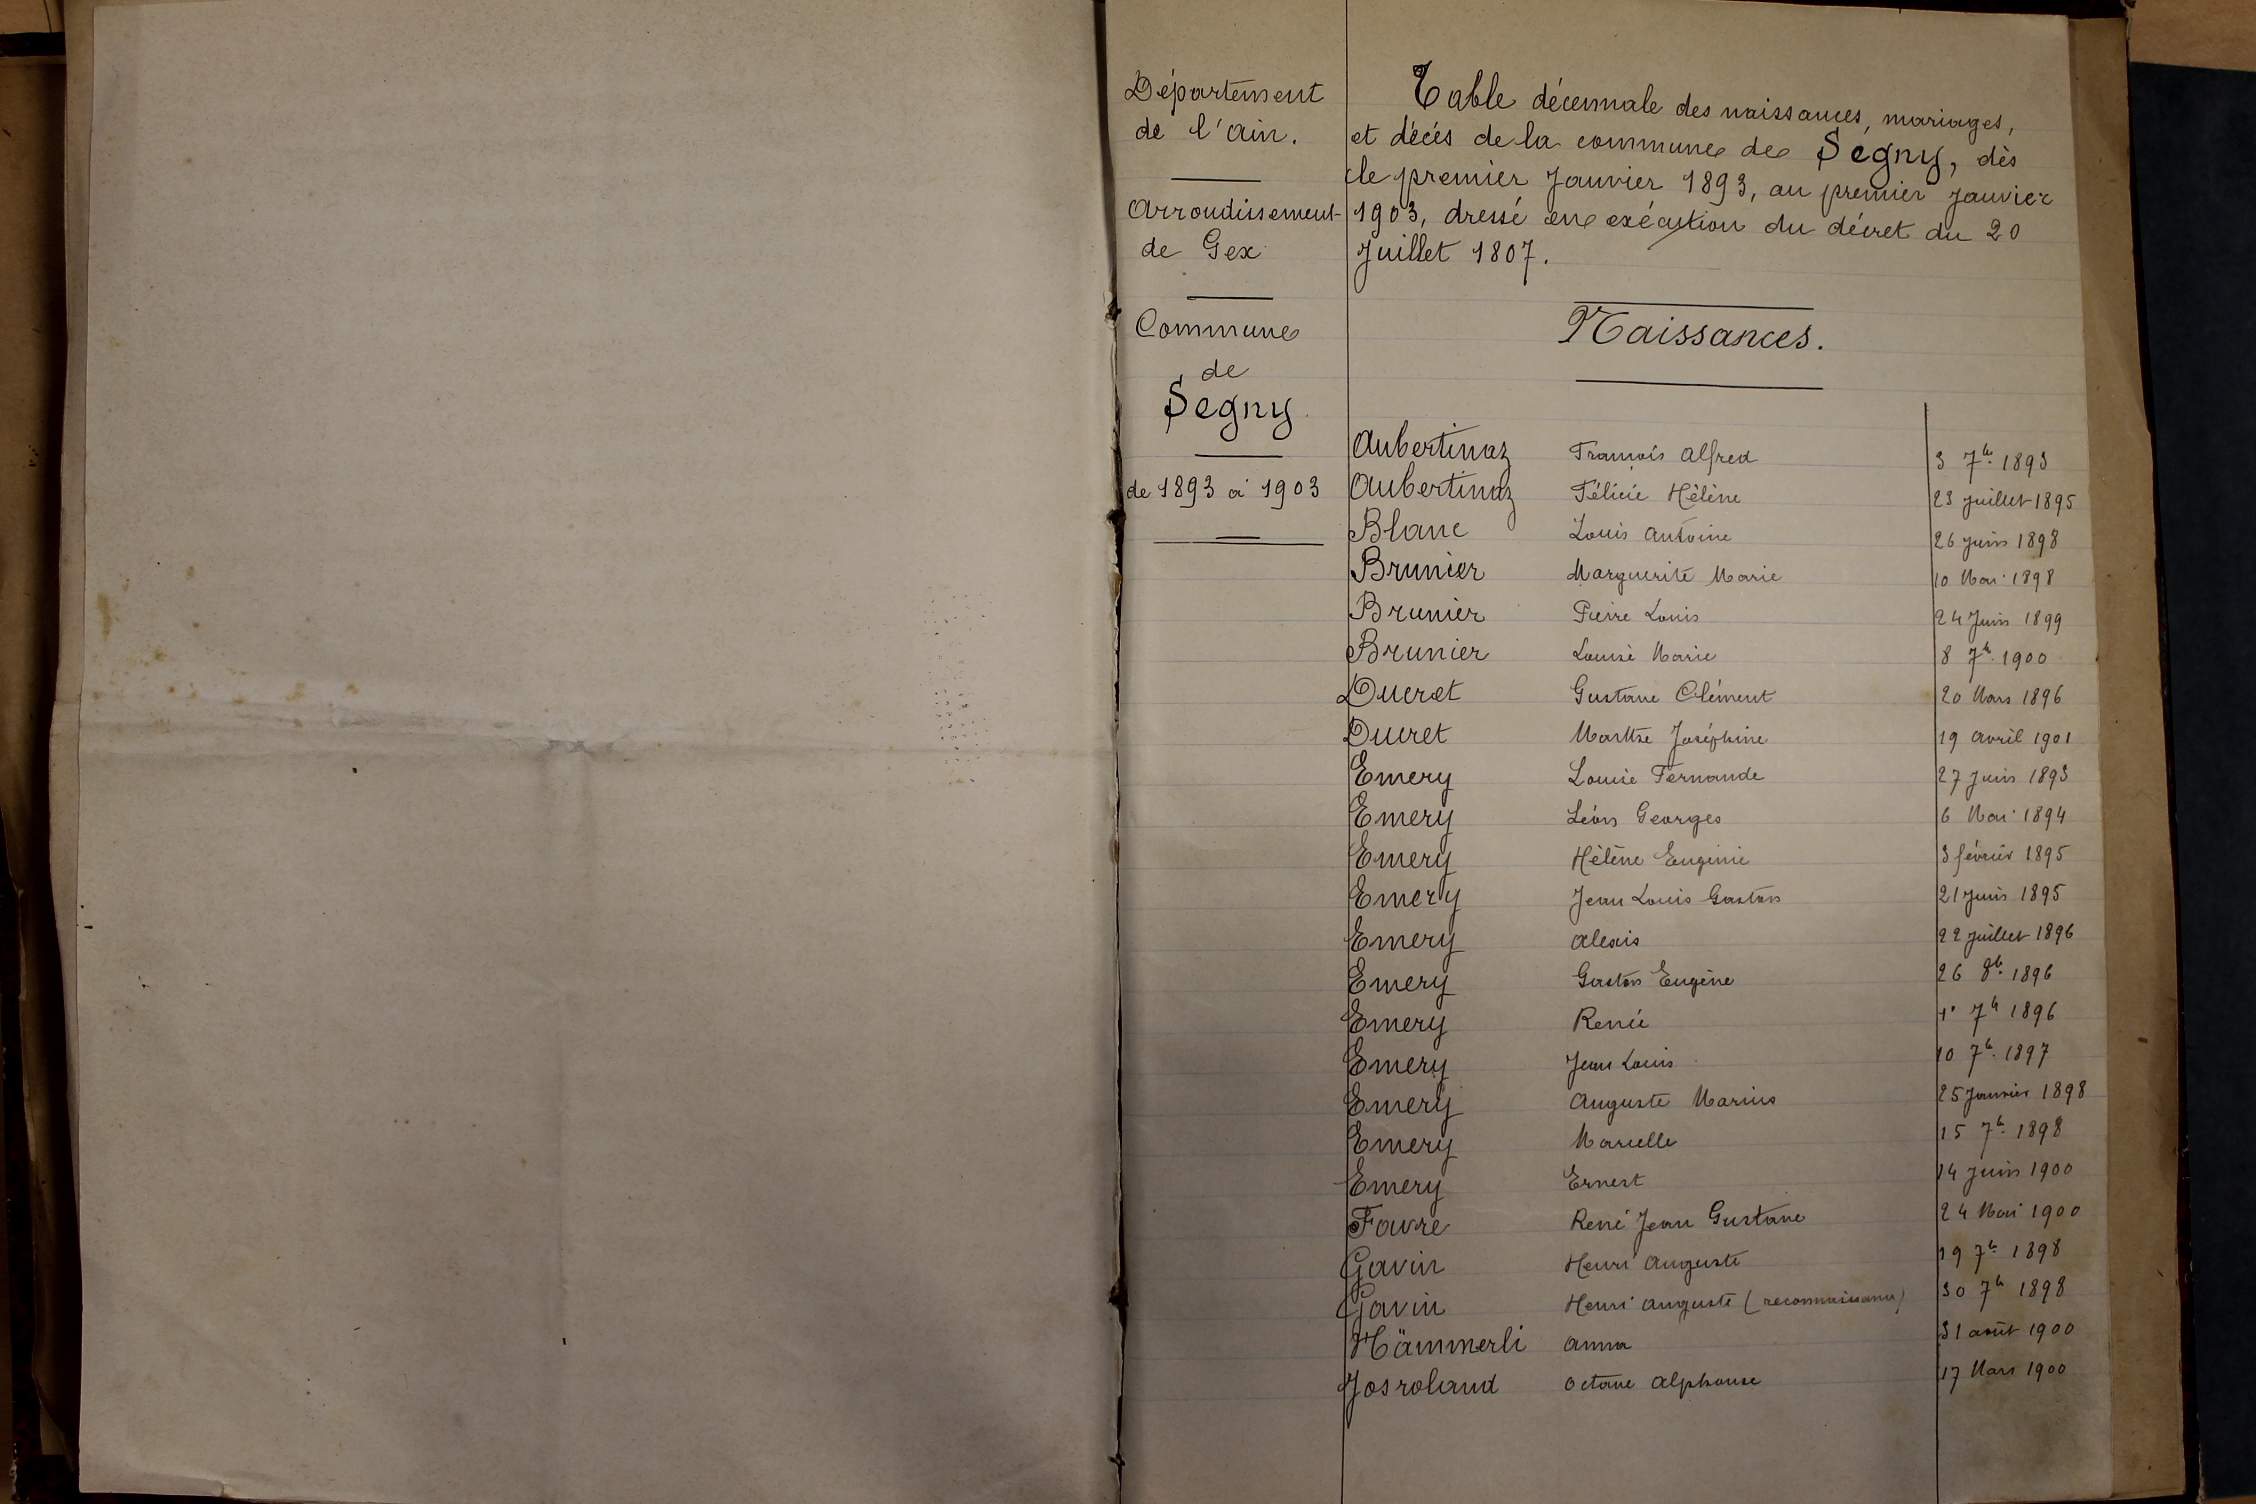 Département
de l'Ain.
Arrondissement
de Gex
Commune
de
Segny
de 1893 à 1903
Table décennale des naissances, mariages,
et décès de la commune de Segny, dès
le premier Janvier 1893, au premier Janvier
1903, dressé en exécution du décret du 20
Juillet 1807.
Naissances.
Aubertinaz François Alfred 3 7b. 1893
Aubertinaz Félicie Hélène 23 Juillet 1895
Blanc Louis Antoine 26 Juin 1898
Brunier Marguerite Marie 10 Mai 1898
Brunier Pierre Louis 24 Juin 1899
Brunier Louise Marie 8 7b. 1900
Ducret Gustave Clément 20 Mars 1896
Ducret Marthe Joséphine 19 Avril 1901
Emery Louise Fernande 27 Juin 1893
Emery Léon Georges 6 Mai 1894
Emery Hélène Eugénie 3 février 1895
Emery Jean Louis Gaston 21 Juin 1895
Emery Alexis 22 Juillet 1896
Emery Gaston Eugène 26 8b. 1896
Emery Renée 1er 7b 1896
Emery Jean Louis 10 7b. 1897
Emery Auguste Marius 25 Janvier 1898
Emery Marcelle 15 7b. 1898
Emery Ernest 14 Juin 1900
Favre René Jean Gustave 24 Mai 1900
Gavin Henri Auguste 19 7b. 1898
Gavin Henri Auguste (reconnaissance) 30 7b 1898
Hämmerli Anna 31 août 1900
Josroland Octave Alphonse 17 Mars 1900